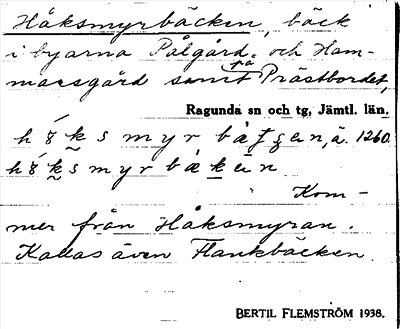 Håksmyrbäcken, bäck
i byarna Pålgård och Ham-
marsgård samt på Prästbordet,
Ragunda sn och tg, Jämtl. län.
1260.
Kom-
mer från Håksmyran.
Kallas även Flankbäcken.
BERTIL FLEMSTRÖM 1938.